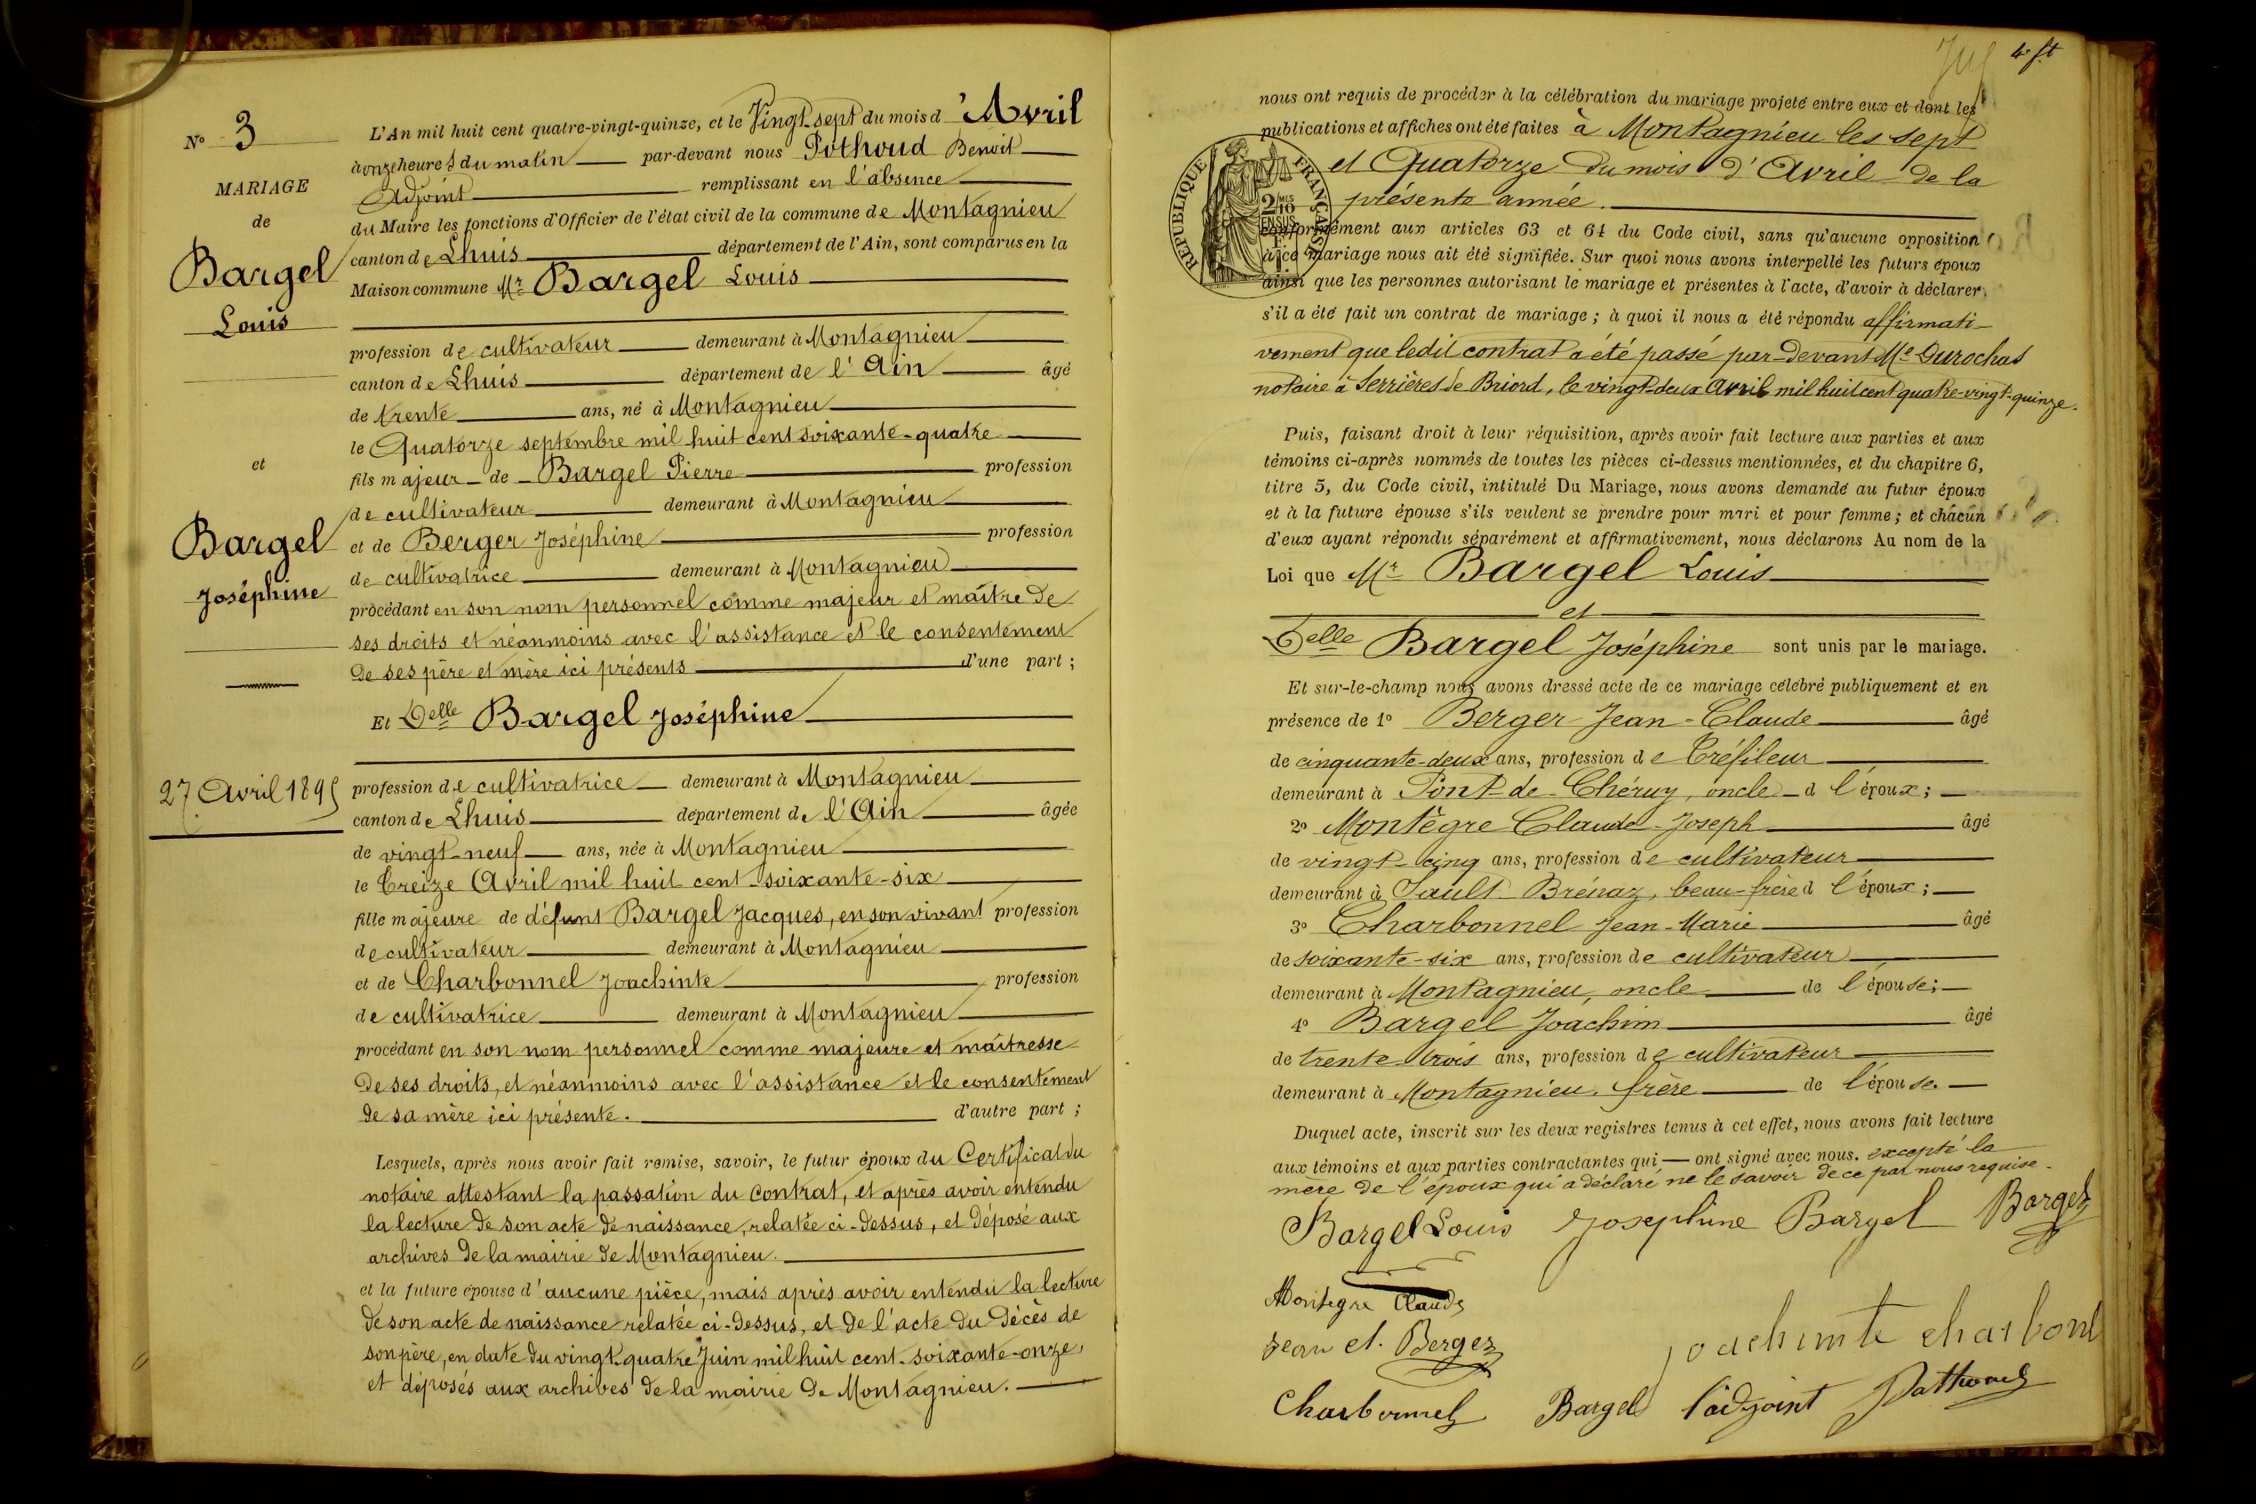 N° 3
MARIAGE
de
Bargel
Louis
et
Bargel
Joséphine
27 Avril 1895
L'An mil huit cent quatre-vingt-quinze, et le Vingt-sept du mois d'Avril
à onze heures du matin par-devant nous Pothoud Benoit
Adjoint remplissant en l'absence
du Maire les fonctions d'Officier de l'état civil de la commune de Montagnieu
canton de Lhuis département de l'Ain, sont comparus en la
Maison commune Mr Bargel Louis
profession de cultivateur demeurant à Montagnieu
canton de Lhuis département de l'Ain âgé
de trente ans, né à Montagnieu
le Quatorze septembre mil huit cent soixante-quatre
fils majeur de Bargel Pierre profession
de cultivateur demeurant à Montagnieu
et de Berger Joséphine profession
de cultivatrice demeurant à Montagnieu
procédant en son nom personnel comme majeur et maître de
ses droits et néanmoins avec l'assistance et le consentement
de ses père et mère ici présents d'une part ;
Et Delle Bargel Joséphine
profession de cultivatrice demeurant à Montagnieu
canton de Lhuis département de l'Ain âgée
de vingt-neuf ans, née à Montagnieu
le Treize Avril mil huit cent soixante-six
fille majeure de défunt Bargel Jacques, en son vivant profession
de cultivateur demeurant à Montagnieu
et de Charbonnel Joachinte profession
de cultivatrice demeurant à Montagnieu
procédant en son nom personnel comme majeure et maîtresse
de ses droits, et néanmoins avec l'assistance et le consentement
de sa mère ici présente. d'autre part ;
Lesquels, après nous avoir fait remise, savoir, le futur époux du Certificat du
notaire attestant la passation du contrat, et après avoir entendu
la lecture de son acte de naissance, relatée ci-dessus, et déposé aux
archives de la mairie de Montagnieu.
et la future épouse d'aucune pièce, mais après avoir entendu la lecture
de son acte de naissance relatée ci-dessus, et de l'acte du décès de
son père, en date du vingt-quatre Juin mil huit cent soixante-onze,
et déposés aux archives de la mairie de Montagnieu.
nous ont requis de procéder à la célébration du mariage projeté entre eux et dont les
publications et affiches ont été faites à Montagnieu les sept
et Quatorze du mois d'Avril de la
présente année.
RÉPUBLIQUE FRANÇAISE
2/10 EN SUS
conformément aux articles 63 et 64 du Code civil, sans qu'aucune opposition
à ce mariage nous ait été signifiée. Sur quoi nous avons interpellé les futurs époux
ainsi que les personnes autorisant le mariage et présentes à l'acte, d'avoir à déclarer
s'il a été fait un contrat de mariage ; à quoi il nous a été répondu affirmati-
vement que ledit contrat a été passé par-devant Me Durochat
notaire à Serrières de Briord, le vingt-deux avril mil huit cent quatre-vingt-quinze.
Puis, faisant droit à leur réquisition, après avoir fait lecture aux parties et aux
témoins ci-après nommés de toutes les pièces ci-dessus mentionnées, et du chapitre 6,
titre 5, du Code civil, intitulé Du Mariage, nous avons demandé au futur époux
et à la future épouse s'ils veulent se prendre pour mari et pour femme ; et chacun
d'eux ayant répondu séparément et affirmativement, nous déclarons Au nom de la
Loi que Mr Bargel Louis
et
Delle Bargel Joséphine sont unis par le mariage.
Et sur-le-champ nous avons dressé acte de ce mariage célébré publiquement et en
présence de 1° Berger Jean-Claude âgé
de cinquante-deux ans, profession de Tréfileur
demeurant à Pont-de-Chéruy, oncle d l'époux ;
2° Montègre Claude-Joseph âgé
de vingt-cinq ans, profession de cultivateur
demeurant à Sault-Brénaz, beau-frère d l'époux ;
3° Charbonnel Jean-Marie âgé
de soixante-six ans, profession de cultivateur
demeurant à Montagnieu, oncle de l'épouse ;
4° Bargel Joachim âgé
de trente-trois ans, profession de cultivateur
demeurant à Montagnieu, frère de l'épouse.
Duquel acte, inscrit sur les deux registres tenus à cet effet, nous avons fait lecture
aux témoins et aux parties contractantes qui ont signé avec nous. excepté la
mère de l'époux qui a déclaré ne le savoir de ce par nous requise.
Bargel Louis Josephine Bargel Bargel
Montegre Claude
Jean Cl. Berger
Joachimte charbonel
Charbonnel Bargel l'adjoint Pothoud